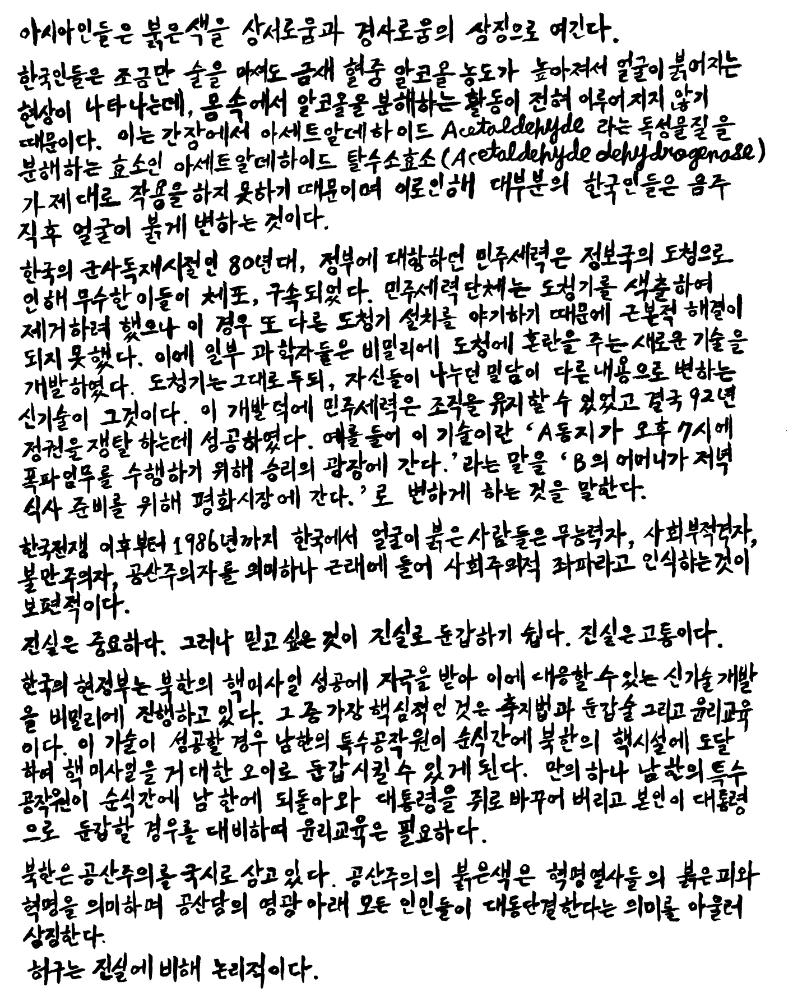 아시아인들은 붉은색을 상서로움과 경사로움의 상징으로 여긴다.
한국인들은 조금만 술을 마셔도 금새 혈중 알코올 농도가 높아져서 얼굴이 붉어지는
현상이 나타나는데, 몸 속에서 알코올을 분해하는 활동이 전혀 이루어지지 않기
때문이다. 이는 간장에서 아세트알데하이드 Acetaldehyde 라는 독성물질을
분해하는 효소인 아세트알데하이드 탈수소효소(Acetaldehyde dehydrogenase)
가 제대로 작용을 하지 못하기 때문이며 이로인해 대부분의 한국인들은 음주
직후 얼굴이 붉게 변하는 것이다.
한국의 군사독재시절인 80년대, 정부에 대항하던 민주세력은 정보국의 도청으로
인해 무수한 이들이 체포, 구속되었다. 민주세력 단체는 도청기를 색출하여
제거하려 했으나 이 경우 또 다른 도청기 설치를 야기하기 때문에 근본적 해결이
되지 못했다. 이에 일부 과학자들은 비밀리에 도청에 혼란을 주는 새로운 기술을
개발하였다. 도청기는 그대로 두되, 자신들이 나누던 밀담이 다른 내용으로 변하는
신기술이 그것이다. 이 개발 덕에 민주세력은 조직을 유지할 수 있었고 결국 92년
정권을 쟁탈 하는데 성공하였다. 예를 들어 이 기술이란 ‘A동지가 오후 7시에
폭파업무를 수행하기 위해 승리의 광장에 간다.’라는 말을 ‘B의 어머니가 저녁
식사 준비를 위해 평화시장에 간다.’로 변하게 하는 것을 말한다.
한국전쟁 이후부터 1986년까지 한국에서 얼굴이 붉은 사람들은 무능력자, 사회부적격자,
불만주의자, 공산주의자를 의미하나 근래에 들어 사회주의적 좌파라고 인식하는것이
보편적이다.
진실은 중요하다. 그러나 믿고 싶은 것이 진실로 둔갑하기 쉽다. 진실은 고통이다.
한국의 현정부는 북한의 핵미사일 성공에 자극을 받아 이에 대응할 수 있는 신기술 개발
을 비밀리에 진행하고 있다. 그 중 가장 핵심적인 것은 축지법과 둔갑술 그리고 윤리교육
이다. 이 기술이 성공할 경우 남한의 특수공작원이 순식간에 북한의 핵시설에 도달
하여 핵미사일을 거대한 오이로 둔갑시킬 수 있게 된다. 만의 하나 남한의 특수
공작원이 순식간에 남한에 되돌아와 대통령을 쥐로 바꾸어 버리고 본인이 대통령
으로 둔갑할 경우를 대비하여 윤리교육은 필요하다.
북한은 공산주의를 국시로 삼고 있다. 공산주의의 붉은색은 혁명열사들의 붉은 피와
혁명을 의미하며 공산당의 영광 아래 모든 인민들이 대동단결한다는 의미를 아울러
상징한다.
허구는 진실에 비해 논리적이다.